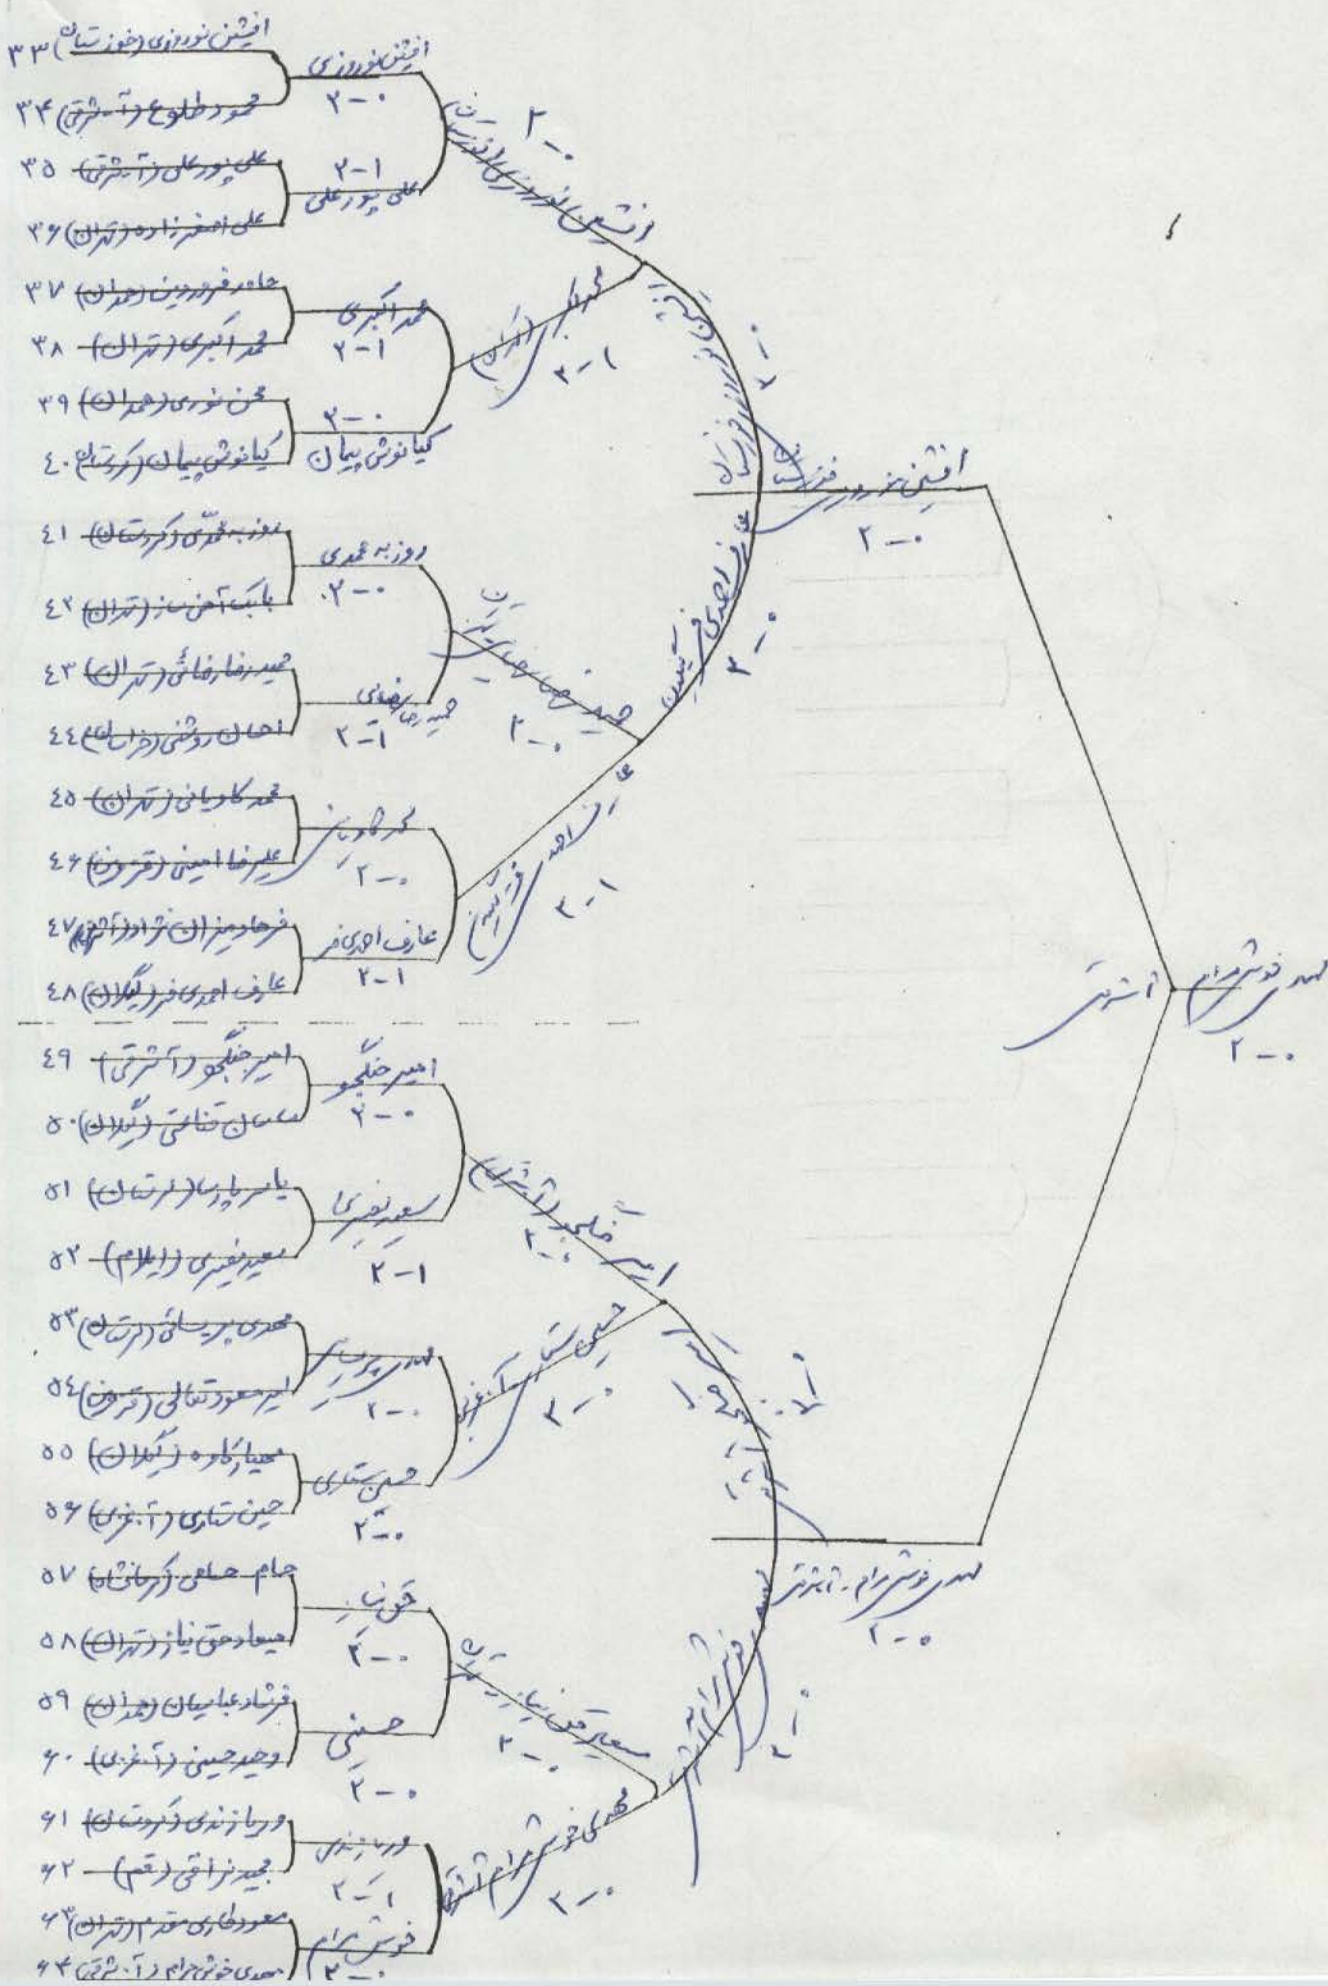 ۳۳ افشین نوروزی (خوزستان)
۳۴ محمود طلوع (آ-شرقی)
۳۵ علی پورعلی (آ-شرقی)
۳۶ علی اصغرزاده (تهران)
۳۷ فروردین (همدان)
۳۸ محمد اکبری (تهران)
۳۹ محسن نوری (همدان)
٤۰ کیانوش پیمان (کردستان)
٤۱ روزبه محمدی (کردستان)
٤۲ بابک آهن ساز (تهران)
٤۳ حمیدرضا رضائی (تهران)
٤٤ احسان روشنی (خراسان)
٤۵ محمد کاویانی (تهران)
٤۶ علیرضا امینی (قزوین)
٤۷ فرهاد میزان نژاد (آ شرقی)
٤۸ عارف احمدی فر (گیلان)
٤۹ امیر جنگجو (آ شرقی)
۵۰ ساسان قناعتی (گیلان)
۵۱ یاسر پارسا (لرستان)
۵۲ سعید نصیری (ایلام)
۵۳ مهدی پریسائی (لرستان)
۵٤ امیرمسعود تعالی (قزوین)
۵۵ کاوه (گیلان)
۵۶ حسین ستاری (آ.غربی)
۵۷ (کرمانشاه)
۵۸ میعاد حق نیاز (تهران)
۵۹ فرشاد عباسیان (همدان)
۶۰ وحید حسینی (آ.غربی)
۶۱ وریا زندی (کردستان)
۶۲ مجید نراقی (قم)
۶۳ مسعود غفاری مقدم (تهران)
۶۴ مهدی خوش مرام (آ-شرقی)
افشین نوروزی
۲-۰
۲-۱
علی پورعلی
محمد اکبری
۲-۱
۲-۰
کیانوش پیمان
روزبه محمدی
۲-۰
حمیدرضا رضایی
۲-۱
محمد کاویانی
۲-۰
عارف احمدی فر
۲-۱
امیر جنگجو
۲-۰
سعید نصیری
۲-۱
مهدی پریسایی
۲-۰
حسین ستاری
۲-۰
حق نیاز
۲-۰
حسینی
۲-۰
وریا زندی
۲-۱
خوش مرام
۲-۰
افشین نوروزی (خوزستان)
۲-۰
محمد اکبری (تهران)
۲-۱
حمیدرضا رضایی تهران
۲-۰
عارف احمدی فر گیلان
۲-۱
امیر جنگجو (آ شرقی)
۲-۰
حسین ستاری آ.غربی
۲-۰
حق نیاز تهران
۲-۰
مهدی خوش مرام آ شرقی
۲-۰
افشین نوروزی خوزستان
۲-۰
عارف احمدی فر گیلان
۲-۰
۲-۰
۲-۰
افشین نوروزی خوزستان
۲-۰
مهدی خوش مرام - آ شرقی
۲-۰
مهدی خوش مرام آ شرقی
۲-۰